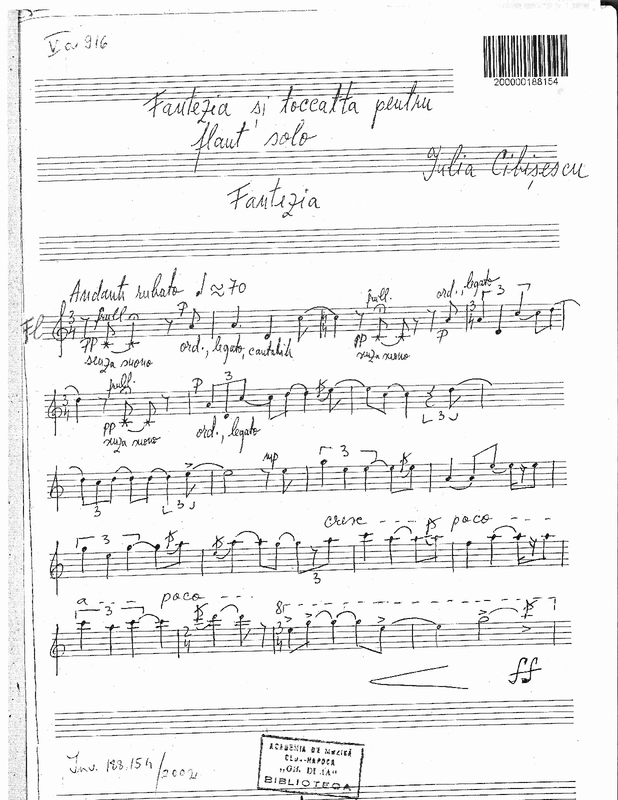 V a 916
200000188154
Fantezia și toccatta pentru
flaut solo
Iulia Cibișescu
Fantezia
Andante rubato ♩ ≈ 70
Fl
3/4 frull. P frull. ord., legato 3
pp ord., legato, cantabile pp P
senza suono senza suono
frull. P 3
3/4 pp ord., legato 3
senza suono
mp 3
3 3
cresc - - - - poco - - - -
3 3
a - - - - poco - - - - 8 - - - -
3 2/4 3/4
ff
Inv. 188.154/2002
ACADEMIA DE MUZICĂ
CLUJ-NAPOCA
„GH. DIMA"
BIBLIOTECA